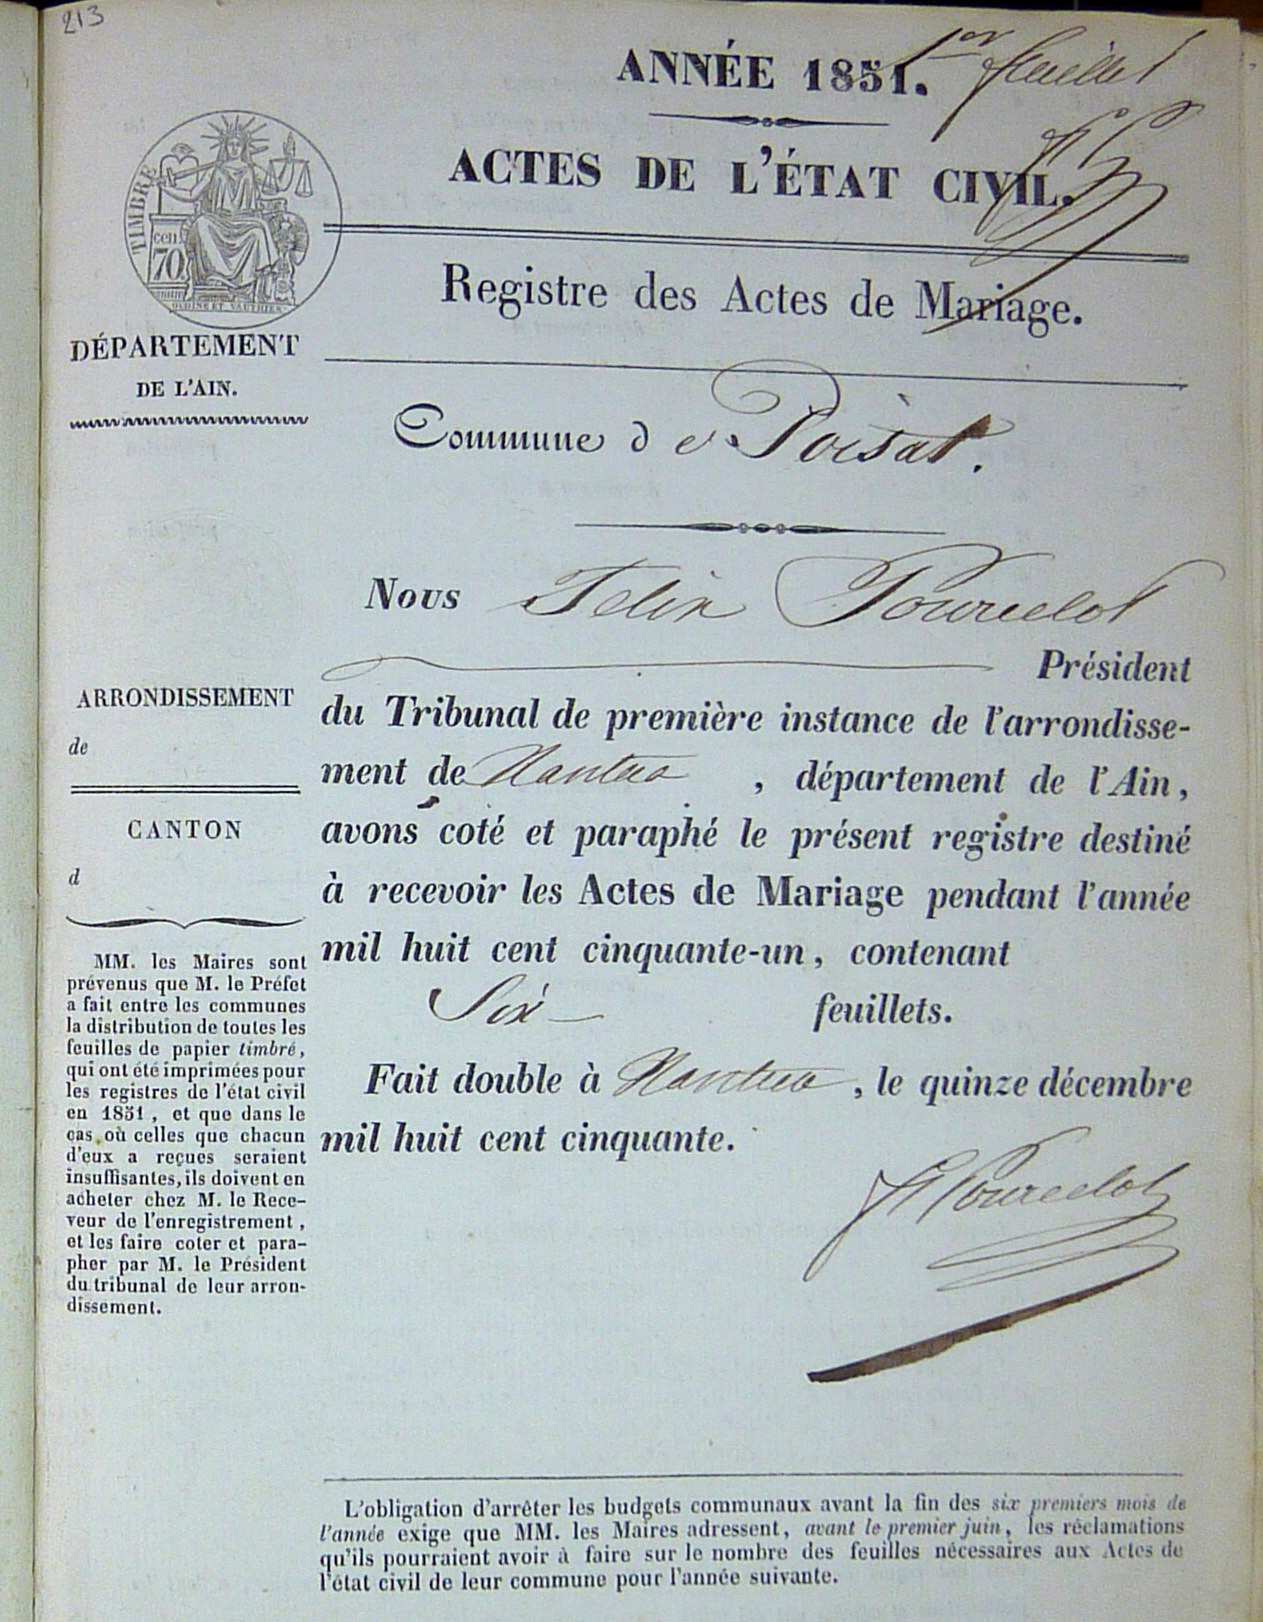 213
1er feuillet
ANNÉE 1851.
ACTES DE L'ÉTAT CIVIL.
TIMBRE
cen.
70
OUDINÉ ET VAUTHIER
Registre des Actes de Mariage.
DÉPARTEMENT
DE L'AIN.
Commune de Poisat.
Nous Felix Pourcelot
Président
du Tribunal de première instance de l'arrondisse-
ment de Nantua, département de l'Ain,
avons coté et paraphé le présent registre destiné
à recevoir les Actes de Mariage pendant l'année
mil huit cent cinquante-un, contenant
Six feuillets.
Fait double à Nantua, le quinze décembre
mil huit cent cinquante.
F Pourcelot
ARRONDISSEMENT
de
CANTON
d
MM. les Maires sont
prévenus que M. le Préfet
a fait entre les communes
la distribution de toutes les
feuilles de papier timbré,
qui ont été imprimées pour
les registres de l'état civil
en 1851, et que dans le
cas où celles que chacun
d'eux a reçues seraient
insuffisantes, ils doivent en
acheter chez M. le Rece-
veur de l'enregistrement,
et les faire coter et para-
pher par M. le Président
du tribunal de leur arron-
dissement.
L'obligation d'arrêter les budgets communaux avant la fin des six premiers mois de
l'année exige que MM. les Maires adressent, avant le premier juin, les réclamations
qu'ils pourraient avoir à faire sur le nombre des feuilles nécessaires aux Actes de
l'état civil de leur commune pour l'année suivante.